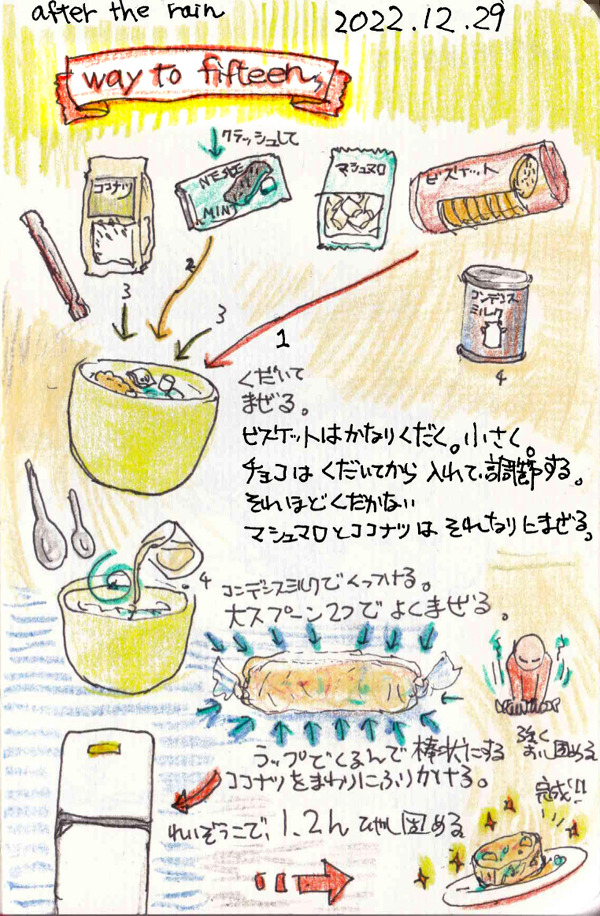 after the rain
2022.12.29
way to fifteen,
クラッシュして
ココナツ
MINT
マシュマロ
ビスケット
コンデンス
ミルク
3
2
3
1
4
くだいて
まぜる。
ビスケットはかなりくだく。小さく。
チョコはくだいてから入れて、調節する。
それほどくだかない
マシュマロとココナツはそれなりにまぜる。
4
コンデンスミルクでくっつける。
大スプーン2つでよくまぜる。
ラップでくるんで棒状にする
ココナツをまわりにふりかける。
強く
固める
れいぞうこで、1.2h ひやし固める
完成!!